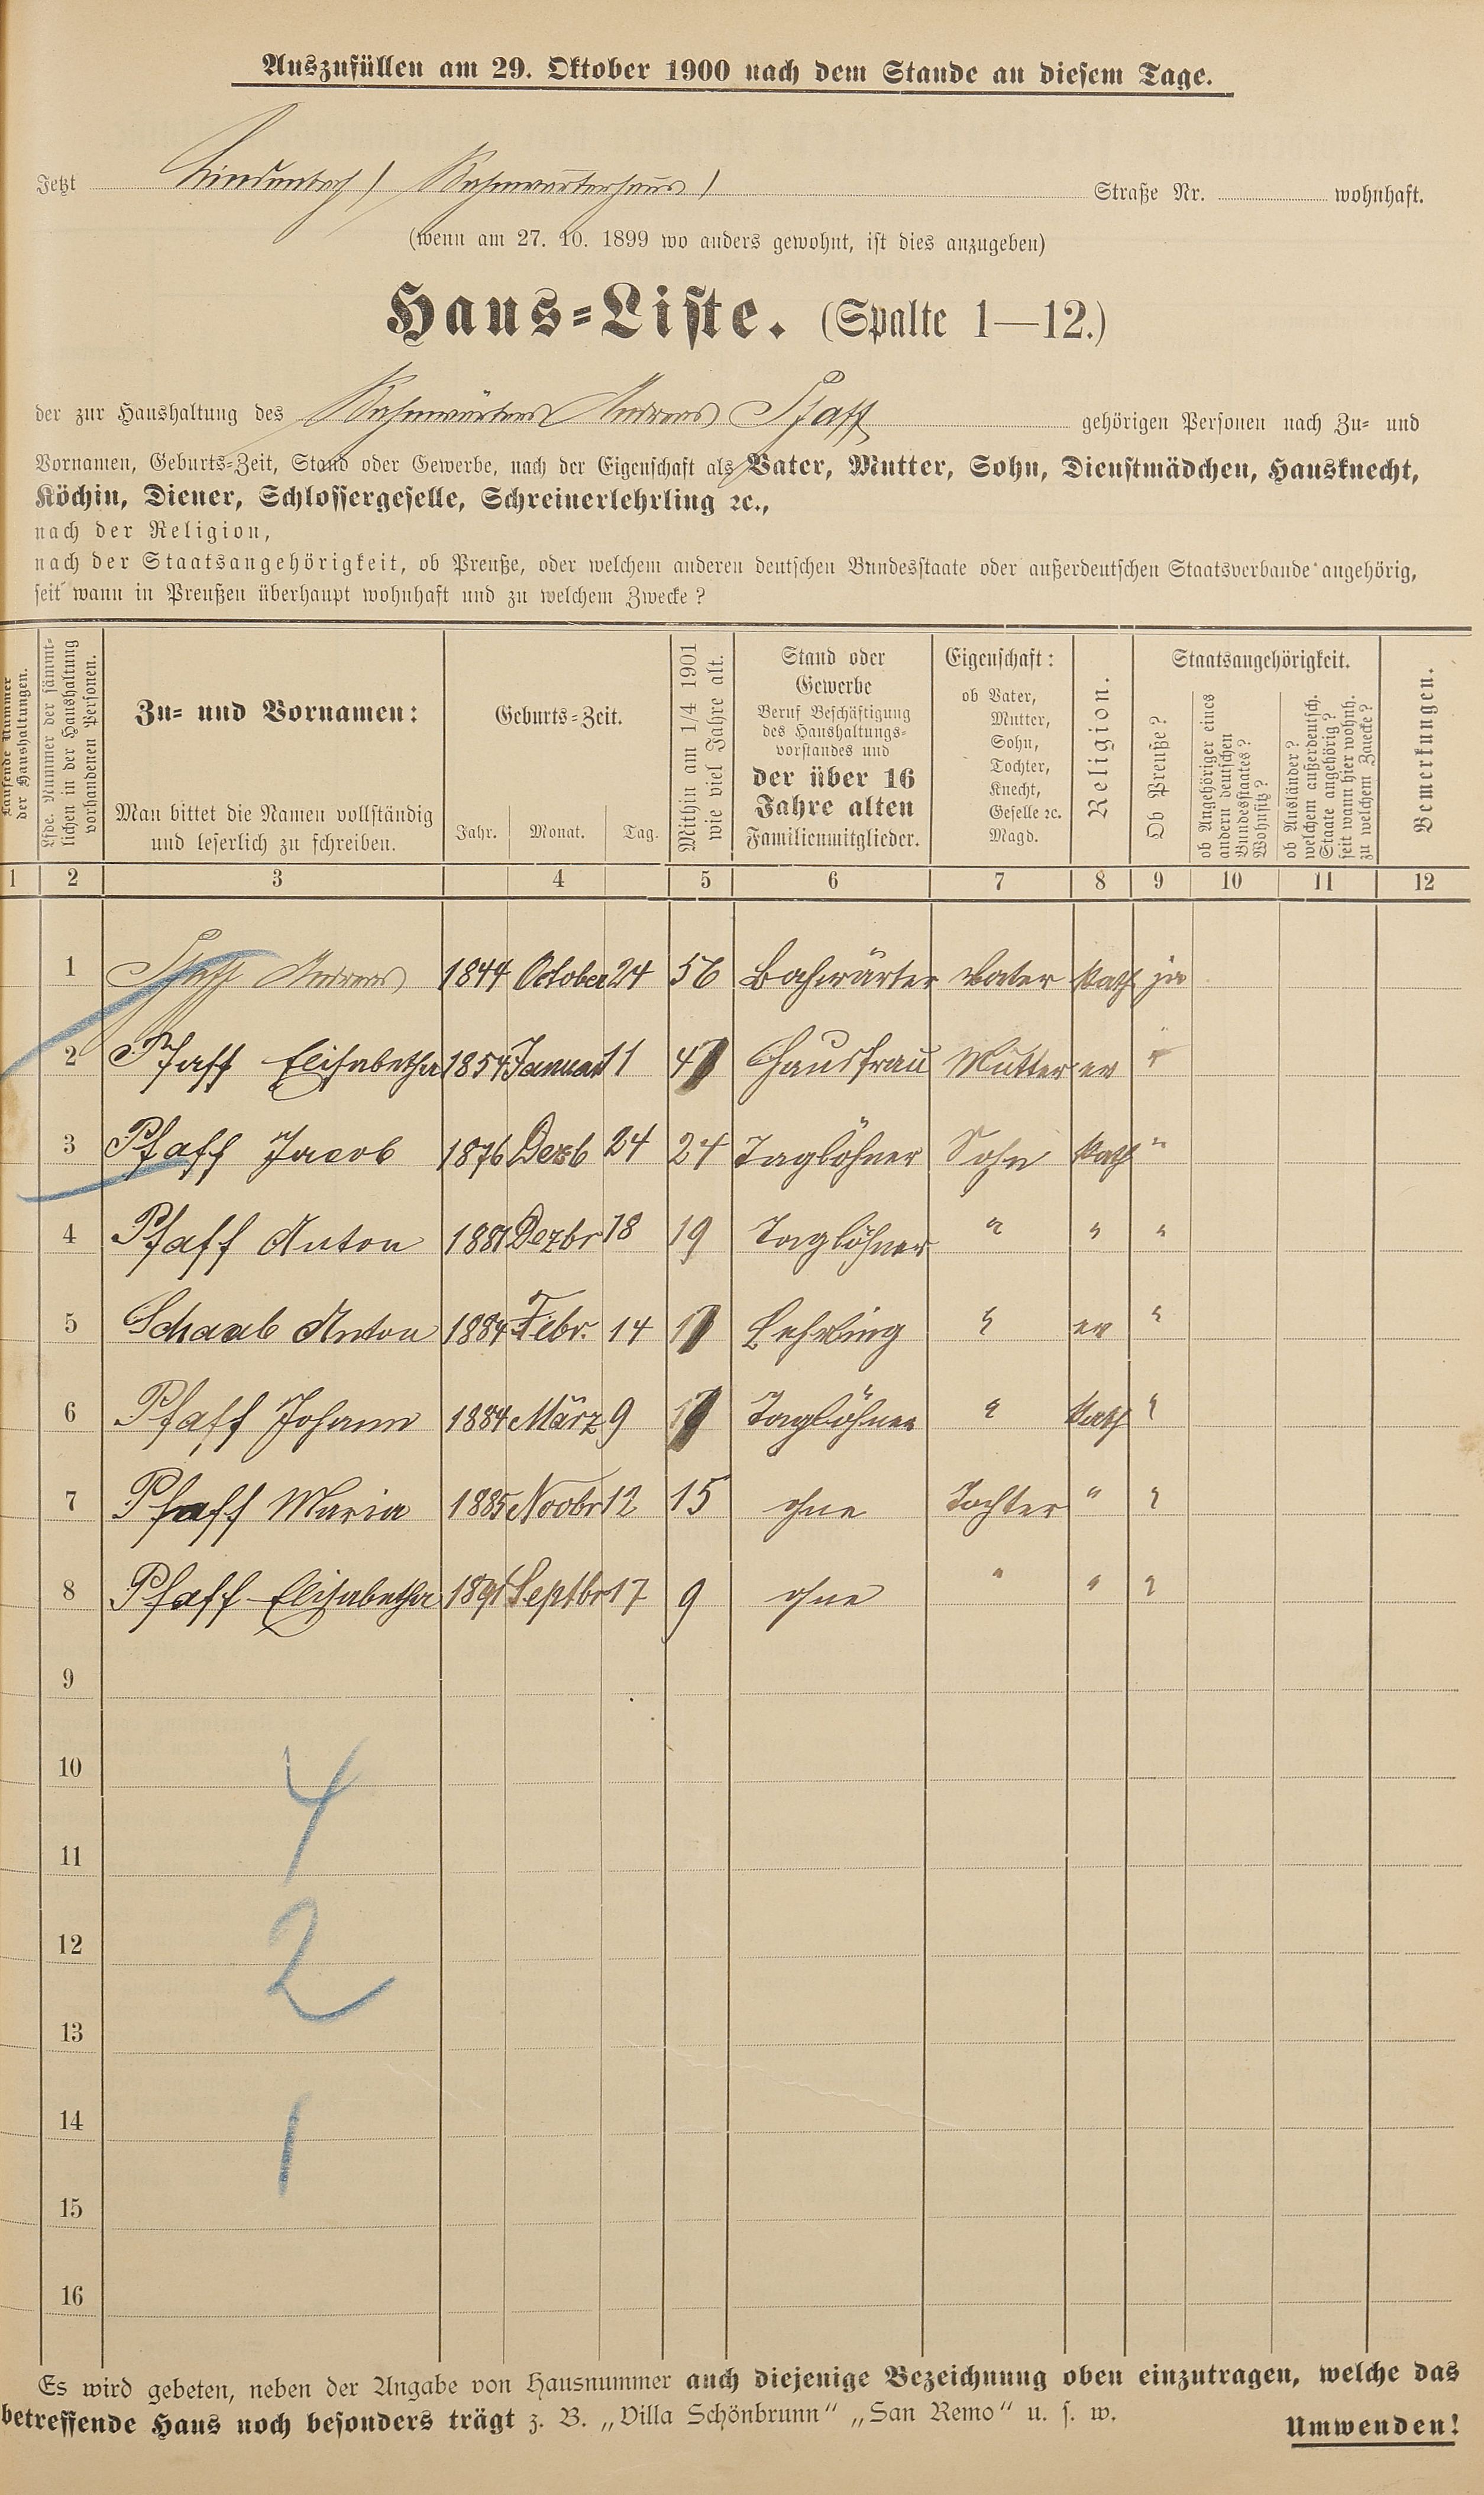 Auszufüllen am 29. Oktober 1900 nach dem Stande an diesem Tage.
Jetzt Lindenbach / Bahnwärterhaus / Straße Nr. wohnhaft.
(wenn am 27. 10. 1899 wo anders gewohnt, ist dies anzugeben)
Haus-Liste. (Spalte 1—12.)
der zur Haushaltung des Bahnwärters Andreas Pfaff gehörigen Personen nach Zu- und
Vornamen, Geburts-Zeit, Stand oder Gewerbe, nach der Eigenschaft als Vater, Mutter, Sohn, Dienstmädchen, Hausknecht,
Köchin, Diener, Schlossergeselle, Schreinerlehrling ꝛc.,
nach der Religion,
nach der Staatsangehörigkeit, ob Preuße, oder welchem anderen deutschen Bundesstaate oder außerdeutschen Staatsverbande angehörig,
seit wann in Preußen überhaupt wohnhaft und zu welchem Zwecke?
Laufende Nummer
der Haushaltungen.
Lfde. Nummer der sämmt-
lichen in der Haushaltung
vorhandenen Personen.
Zu- und Vornamen:
Man bittet die Namen vollständig
und leserlich zu schreiben.
Geburts-Zeit.
Jahr. Monat. Tag.
Mithin am 1/4 1901
wie viel Jahre alt.
Stand oder
Gewerbe
Beruf Beschäftigung
des Haushaltungs-
vorstandes und
der über 16
Jahre alten
Familienmitglieder.
Eigenschaft:
ob Vater,
Mutter,
Sohn,
Tochter,
Knecht,
Geselle ꝛc.
Magd.
Religion.
Staatsangehörigkeit.
Ob Preuße?
ob Angehöriger eines
andern deutschen
Bundesstaates?
Wohnsitz?
ob Ausländer?
welchem außerdeutsch.
Staate angehörig?
seit wann hier wohnh.
zu welchem Zwecke?
Bemerkungen.
1 2 3 4 5 6 7 8 9 10 11 12
1 Pfaff Andreas 1844 October 24 56 Bahwärter Vater Kath ja
2 Pfaff Elisabetha 1854 Januar 11 47 Hausfrau Mutter ev "
3 Pfaff Jacob 1876 Dezb 24 24 Taglöhner Sohn Kath "
4 Pfaff Anton 1881 Dezbr 18 19 Taglöhner " " "
5 Schaab Anton 1884 Febr. 14 17 Lehrling " ev "
6 Pfaff Johann 1884 März 9 17 Taglöhner " Kath "
7 Pfaff Maria 1885 Novbr 12 15 ohne Tochter " "
8 Pfaff Elisabetha 1891 Septbr 17 9 ohne " " "
9
10
4
11
12
2
13
14
1
15
16
Es wird gebeten, neben der Angabe von Hausnummer auch diejenige Bezeichnung oben einzutragen, welche das
betreffende Haus noch besonders trägt z. B. „Villa Schönbrunn“ „San Remo“ u. s. w.
Umwenden!